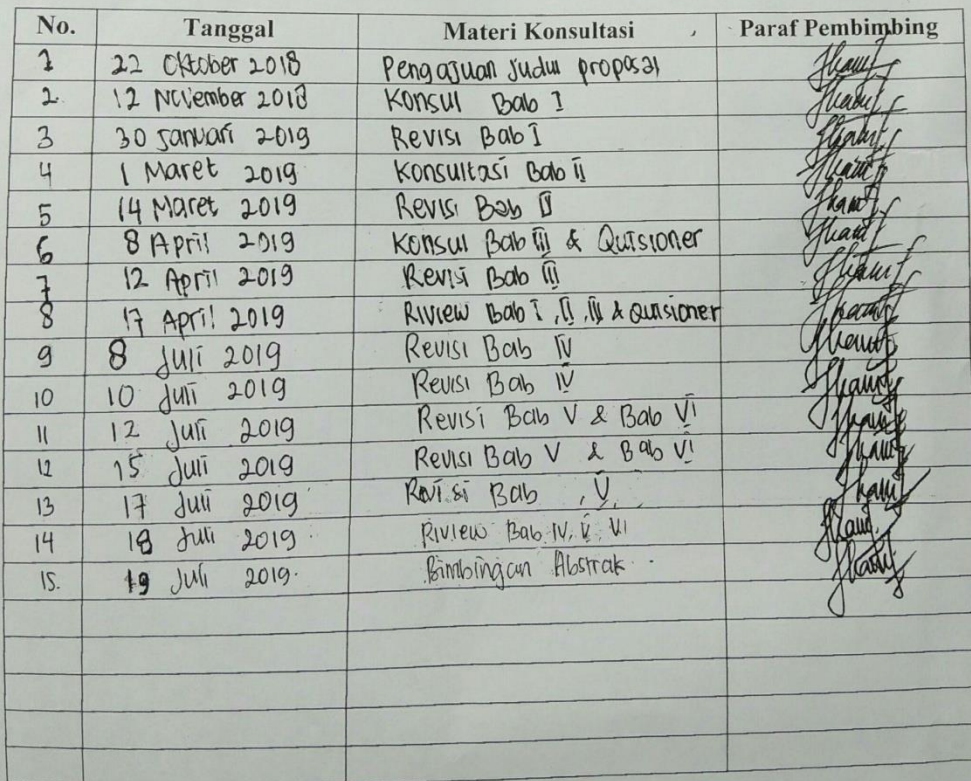 No. Tanggal Materi Konsultasi Paraf Pembimbing
1 22 Oktober 2018 Pengajuan Judul proposal
2. 12 November 2018 Konsul Bab I
3 30 Januari 2019 Revisi Bab I
4 1 Maret 2019 Konsultasi Bab II
5 14 Maret 2019 Revisi Bab II
6 8 April 2019 Konsul Bab III & Quisioner
7 12 April 2019 Revisi Bab III
8 17 April 2019 Riview Bab I, II, III & Quisioner
9 8 Juli 2019 Revisi Bab IV
10 10 Juli 2019 Revisi Bab IV
11 12 Juli 2019 Revisi Bab V & Bab VI
12 15 Juli 2019 Revisi Bab V & Bab VI
13 17 Juli 2019 Revisi Bab , V
14 18 Juli 2019 Riview Bab IV, V, VI
15. 19 Juli 2019. Bimbingan Abstrak